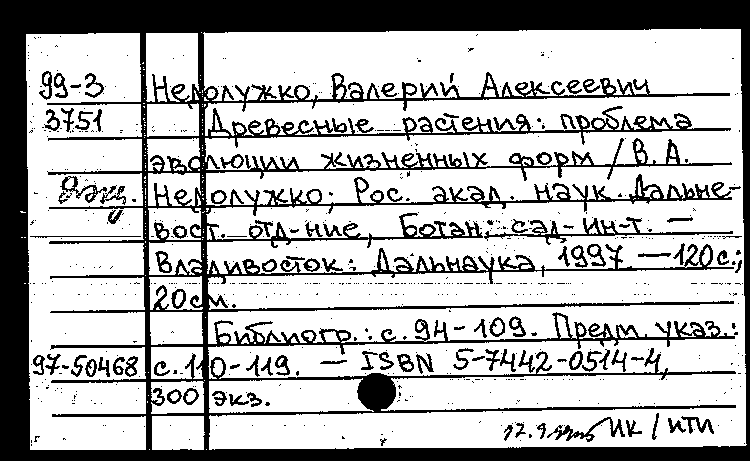 99-3 Недолужко, Валерий Алексеевич
3751 Древесные растения: проблема
эволюции жизненных форм / В. А.
Недолужко; Рос. акад. наук. Дальне-
вост. отд-ние, Ботан. сад-ин-т. —
Владивосток: Дальнаука, 1997. — 120 с.;
20 см.
Библиогр.: с. 94-109. Предм. указ.:
97-50468 с. 110-119. — ISBN 5-7442-0514-4,
300 экз.
ИК / ИТИ